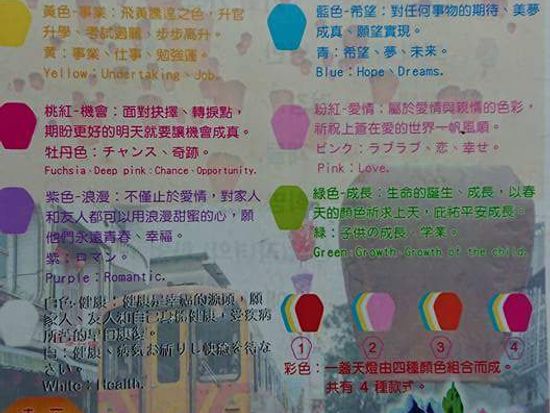 黃色-事業：飛黃騰達之色，升官
升學、考試過關，步步高升。
黄：事業、仕事、勉強運。
Yellow：Undertaking、Job.
藍色-希望：對任何事物的期待、美夢
成真、願望實現。
青：希望、夢、未来。
Blue：Hope、Dreams.
桃紅-機會：面對抉擇、轉捩點，
期盼更好的明天就要讓機會成真。
牡丹色：チャンス、奇跡。
Fuchsia、Deep pink：Chance、Opportunity.
粉紅-愛情：屬於愛情與親情的色彩，
祈祝上蒼在愛的世界一帆風順。
ピンク：ラブラブ、恋、幸せ。
Pink：Love.
紫色-浪漫：不僅止於愛情，對家人
和友人都可以用浪漫甜蜜的心，願
他們永遠青春、幸福。
紫：ロマン。
Purple：Romantic.
綠色-成長：生命的誕生、成長，以春
天的顏色祈求上天，庇祐平安成長。
緑：子供の成長、学業。
Green：Growth、Growth of the child.
白色-健康：健康是幸福的源頭，願
家人、友人和自己身體健康，受疾病
所苦的早日康復。
白：健康、病気お祈りし快癒を待な
さい。
White：Health.
1 2 3 4
彩色：一盞天燈由四種顏色組合而成。
共有 4 種款式。